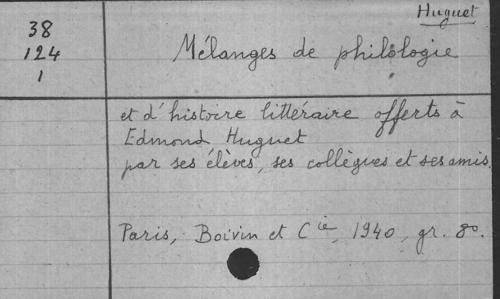 Huguet
38
124
1
Mélanges de philologie
et d'histoire littéraire offerts à
Edmond Huguet
par ses élèves, ses collègues et ses amis.
Paris, Boivin et Cie, 1940, gr. 8o.